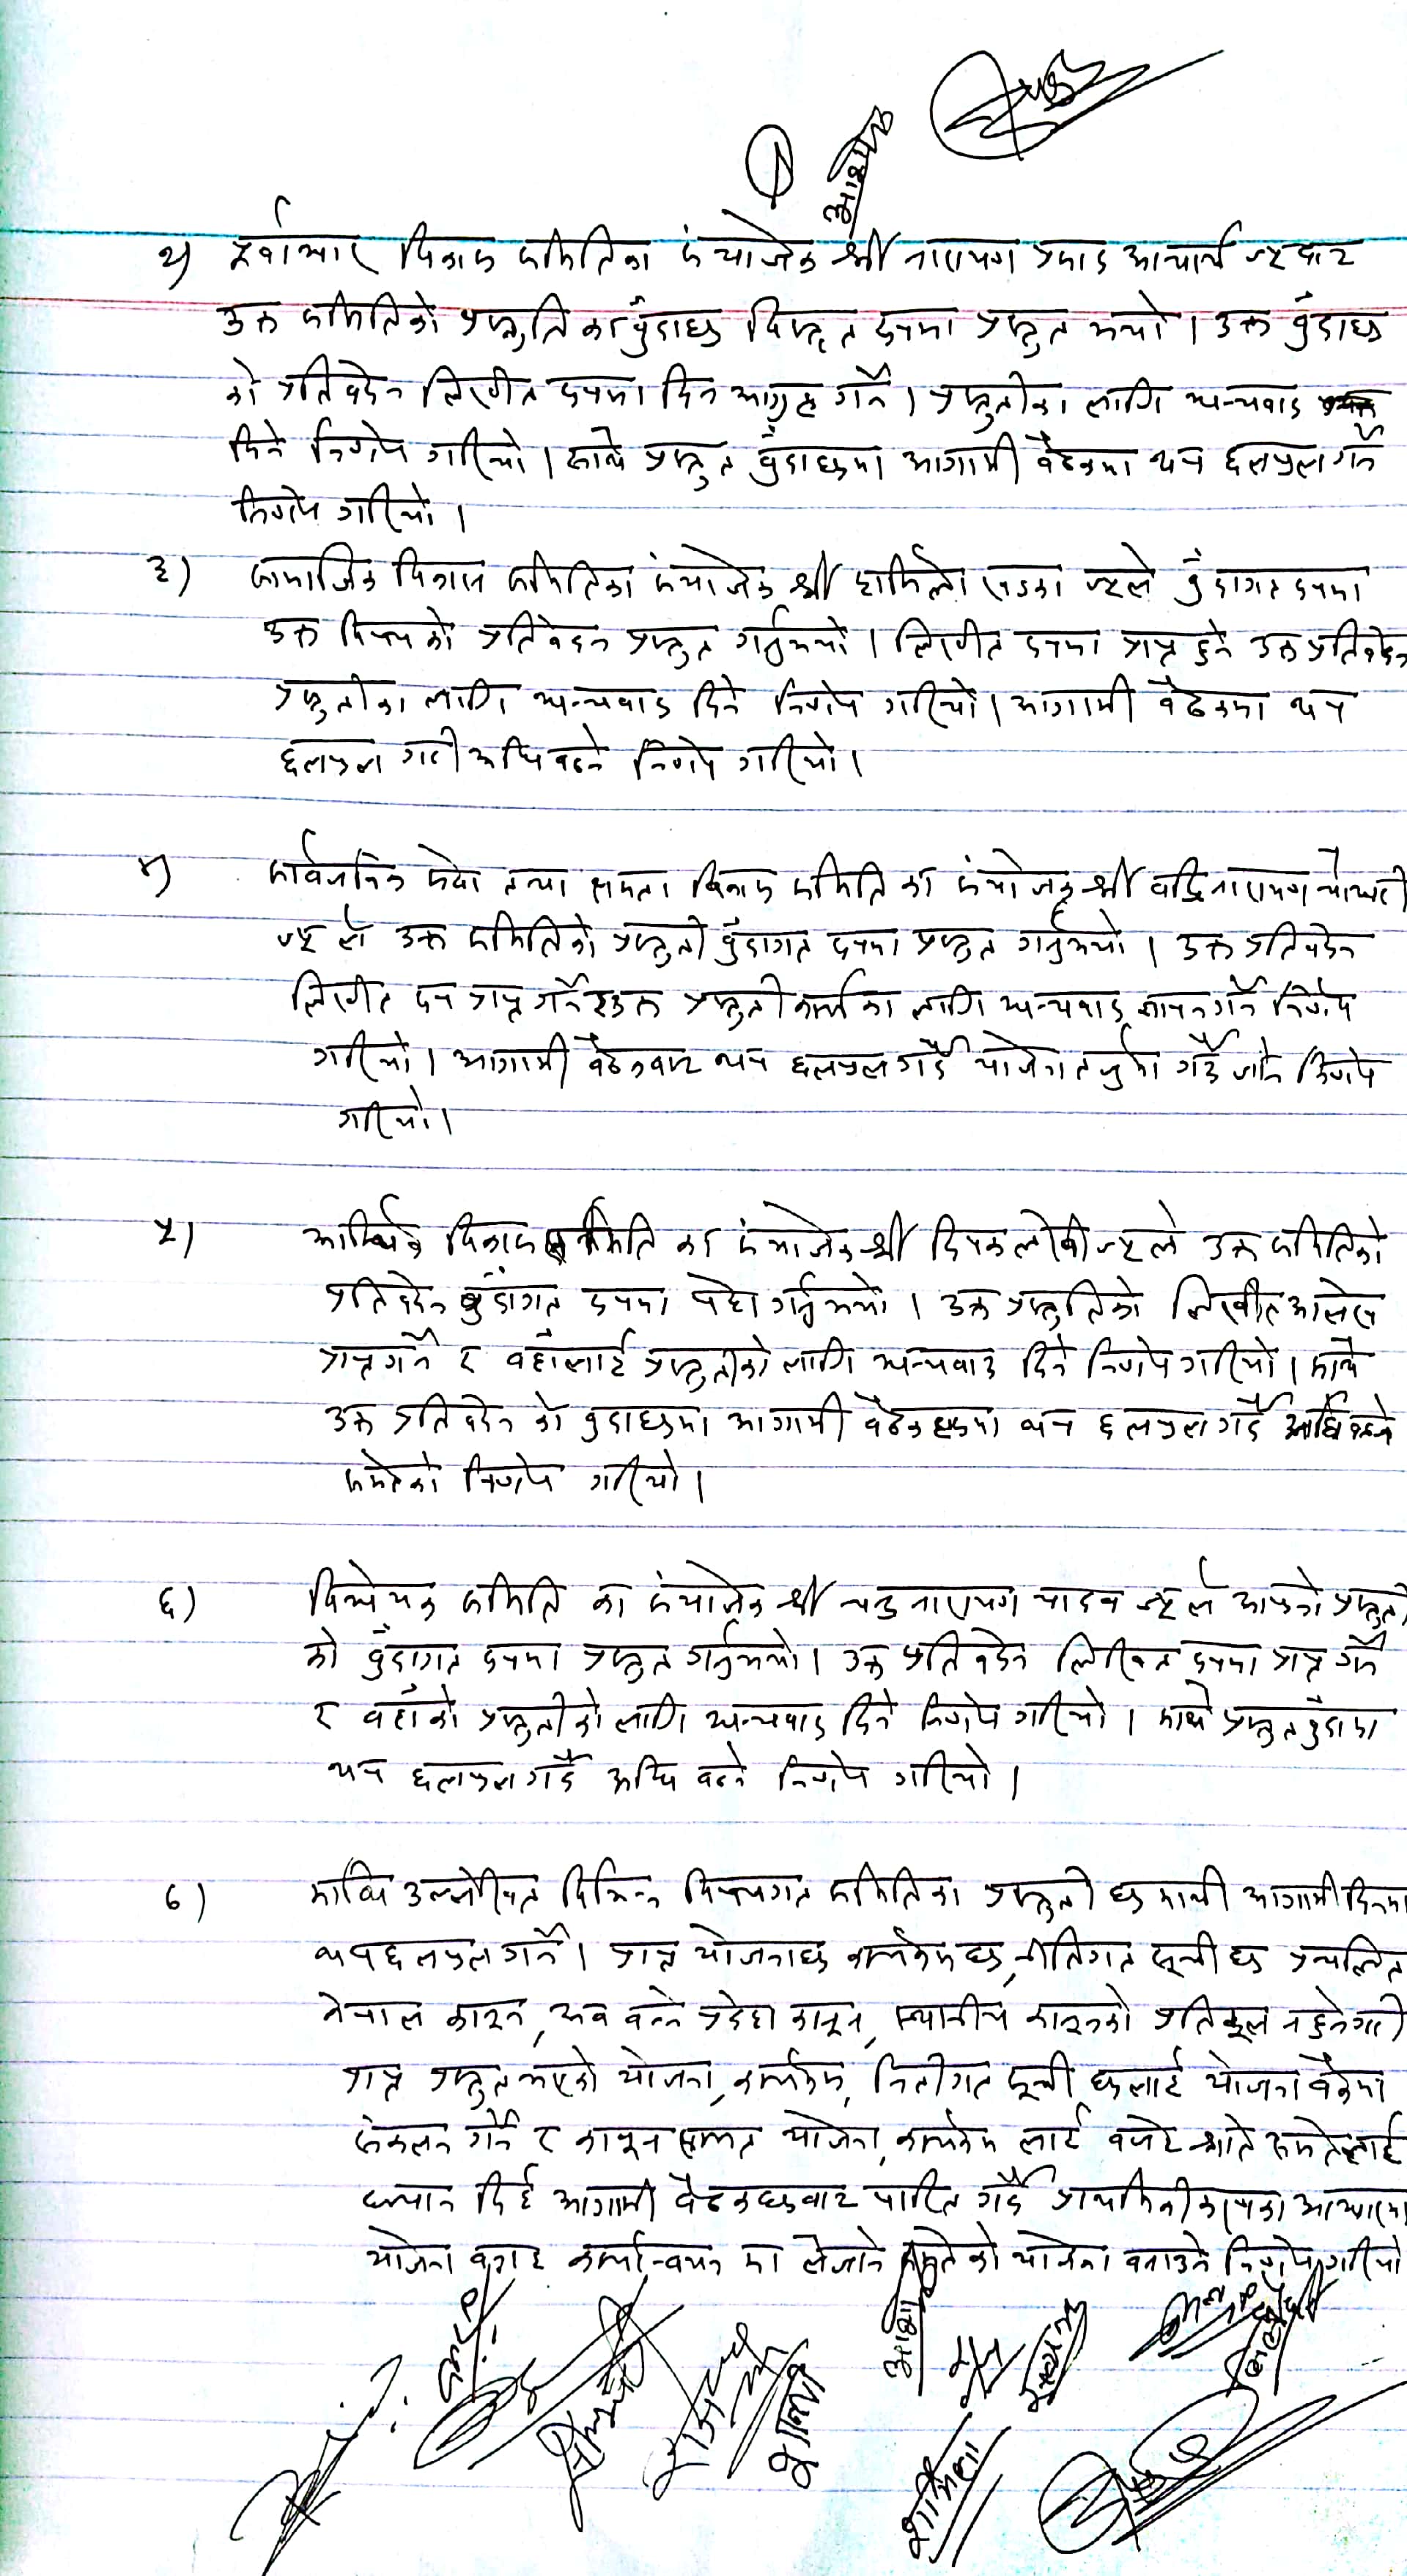 २) पूर्वाधार विकास समितिका संयोजक श्री नारायण प्रसाद आचार्य ज्यूबाट
उक्त समितिको प्रस्तुतिका बुँदाहरु विस्तृत रुपमा प्रस्तुत भयो । उक्त बुँदाहरु
को प्रतिवेदन लिखीत रुपमा दिन आग्रह गर्ने । प्रस्तुतीका लागि धन्यवाद
दिने निर्णय गरियो । साथै प्रस्तुत बुँदाहरुमा आगामी बैठकमा थप छलफल गर्ने
निर्णय गरियो ।
३) सामाजिक विकास समितिका संयोजक श्री शर्मिला खडका ज्यूले बुँदागत रुपमा
उक्त विषयको प्रतिवेदन प्रस्तुत गर्नुभयो । लिखीत रुपमा प्राप्त हुने उक्त प्रतिवेदन
प्रस्तुतीका लागि धन्यवाद दिने निर्णय गरियो । आगामी बैठकमा थप
छलफल गरी अघि बढ्ने निर्णय गरियो ।
४) सार्वजनिक सेवा तथा क्षमता विकास समिति का संयोजक श्री बद्रि नारायण चौधरी
ज्यू ले उक्त समितिको प्रस्तुती बुँदागत रुपमा प्रस्तुत गर्नुभयो । उक्त प्रतिवेदन
लिखीत रुप प्राप्त गर्ने र उक्त प्रस्तुती कार्यका लागि धन्यवाद ज्ञापन गर्ने निर्णय
गरियो । आगामी बैठकबाट थप छलफल गर्दै योजना तर्जुमा गर्दै जाने निर्णय
गरियो ।
५) आर्थिक विकास समिति का संयोजक श्री दिपक ज्यूले उक्त समितिको
प्रतिवेदन बुँदागत रुपमा पेश गर्नुभयो । उक्त प्रस्तुतिको लिखीत आलेख
प्राप्त गर्ने र वहाँलाई प्रस्तुतीको लागि धन्यवाद दिने निर्णय गरियो । साथै
उक्त प्रतिवेदन को बुदाहरुमा आगामी बैठकहरुमा थप छलफल गर्दै अघि बढ्ने
समेतको निर्णय गरियो ।
६) विधेयक समिति का संयोजक श्री चन्द्र नारायण यादव ज्यू ले आफ्नो प्रस्तुती
को बुँदागत रुपमा प्रस्तुत गर्नुभयो । उक्त प्रतिवेदन लिखित रुपमा प्राप्त गर्ने
र वहाँको प्रस्तुतीको लागि धन्यवाद दिने निर्णय गरियो । साथै प्रस्तुत बुँदामा
थप छलफल गर्दै अघि बढ्ने निर्णय गरियो ।
७) माथि उल्लेखित विभिन्न विषयगत समितिका प्रस्तुती हरु माथी आगामी दिनमा
थप छलफल गर्ने । प्राप्त योजनाहरु कार्यक्रमहरु, नीतिगत सूची हरु प्रचलित
नेपाल कानून, अब बन्ने प्रदेश कानून, स्थानीय कानूनको प्रतिकूल नहुनेगरी
प्राप्त प्रस्तुत भएको योजना, कार्यक्रम, नितीगत सूची हरुलाई योजना बैंकमा
संकलन गर्ने र कानून सम्मत योजना, कार्यक्रम लाई बजेट श्रोत समेतलाई
ध्यान दिई आगामी बैठकहरुबाट पारित गर्दै प्राथमिकीकरणका आधारमा
योजना बनाई कार्यान्वयन मा लैजाने समेतको योजना बनाउने निर्णय गरियो
शर्मिला